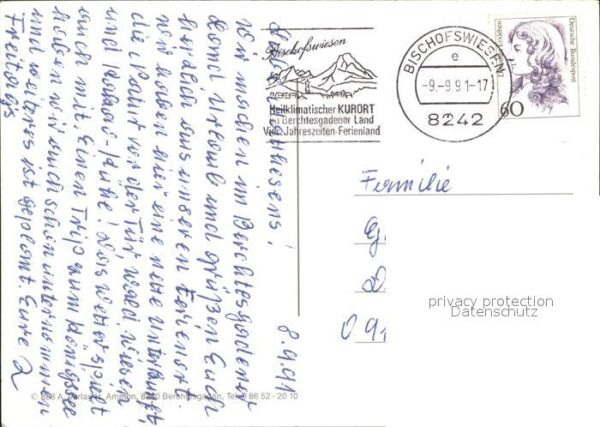 8.9.91
Ihr Lieben!
Wir machen im Berchtesgadener
Land Urlaub und grüßen Euch
herzlich aus unserem Ferienort.
Wir haben hier eine nette Unterkunft,
die Natur vor der Tür, Wald, Wiesen
und Kühe! Das Wetter spielt
auch mit. Einen Trip zum Königssee
haben wir auch schon unternommen
und weiteres ist geplant. Eure 2
Freitags
Bischofswiesen
Heilklimatischer KURORT
im Berchtesgadener Land
Vier-Jahreszeiten-Ferienland
BISCHOFSWIESEN
e
-9.-9.91-17
8242
Deutsche Bundespost
60
Familie
G.
D.
091
privacy protection
Datenschutz
© Verlag Ammon, Berchtesgaden, Tel. 0 86 52 - 20 10